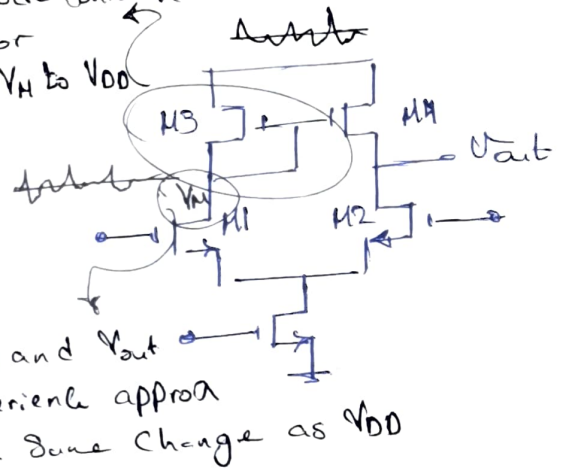 or
VM to VDD
M3
M4
Vout
VM
M1
M2
and Vout
erience approa
Same Change as VDD